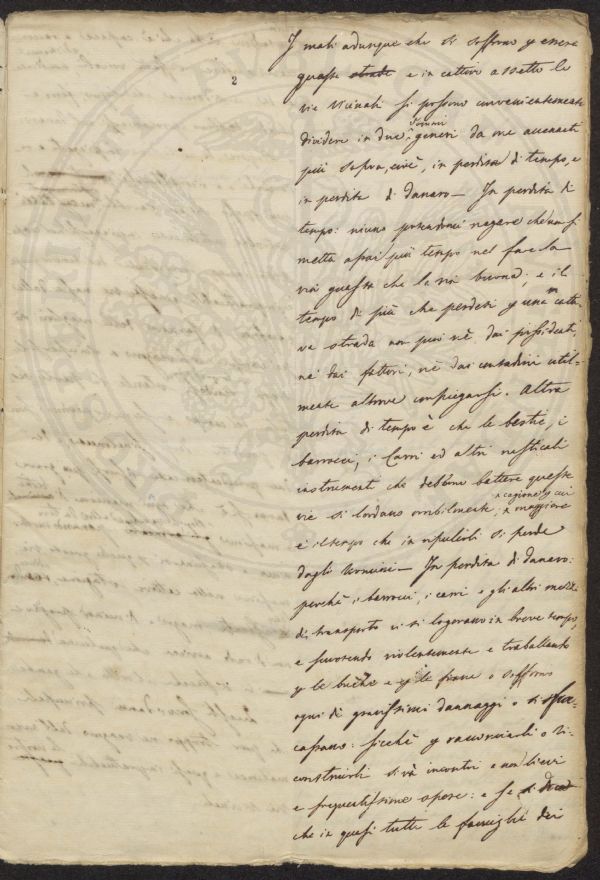 2
I mali adunque che si soffrono p essere
guaste strade e in cattivo assetto le
vie vicinali si possono convenientemente
dividere in due sommi generi da me accennati
più sopra, cioè, in perdita di tempo, e
in perdita di danaro — In perdita di
tempo: niuno potendomi negare che non si
metta assai più tempo nel fare la
via guasta che la via buona; e il
tempo di più che perdesi p una catti-
va strada non può nè dai possidenti,
nè dai fattori, nè dai contadini util-
mente altrove impiegarsi. Altra
perdita di tempo è che le bestie, i
barrocci, i carri ed altri rusticali
instrumenti che debbono battere queste
vie si lordano orribilmente, cagione p cui maggiore
è il tempo che in ripulirli si perde
dagli uomini — In perdita di danaro:
perchè i barrocci, i carri e gli altri mezzi
di trasporto vi si logorano in breve tempo,
e scuotendo violentemente e traballando
p le buche e p le frane o soffrono
ogni dì gravissimi dannaggi o si sfra-
cassano: sicchè p racconciarli o ri-
costruirli si và incontro a non lievi
e frequentissime spese: e se si
che in quasi tutte le famiglie dei